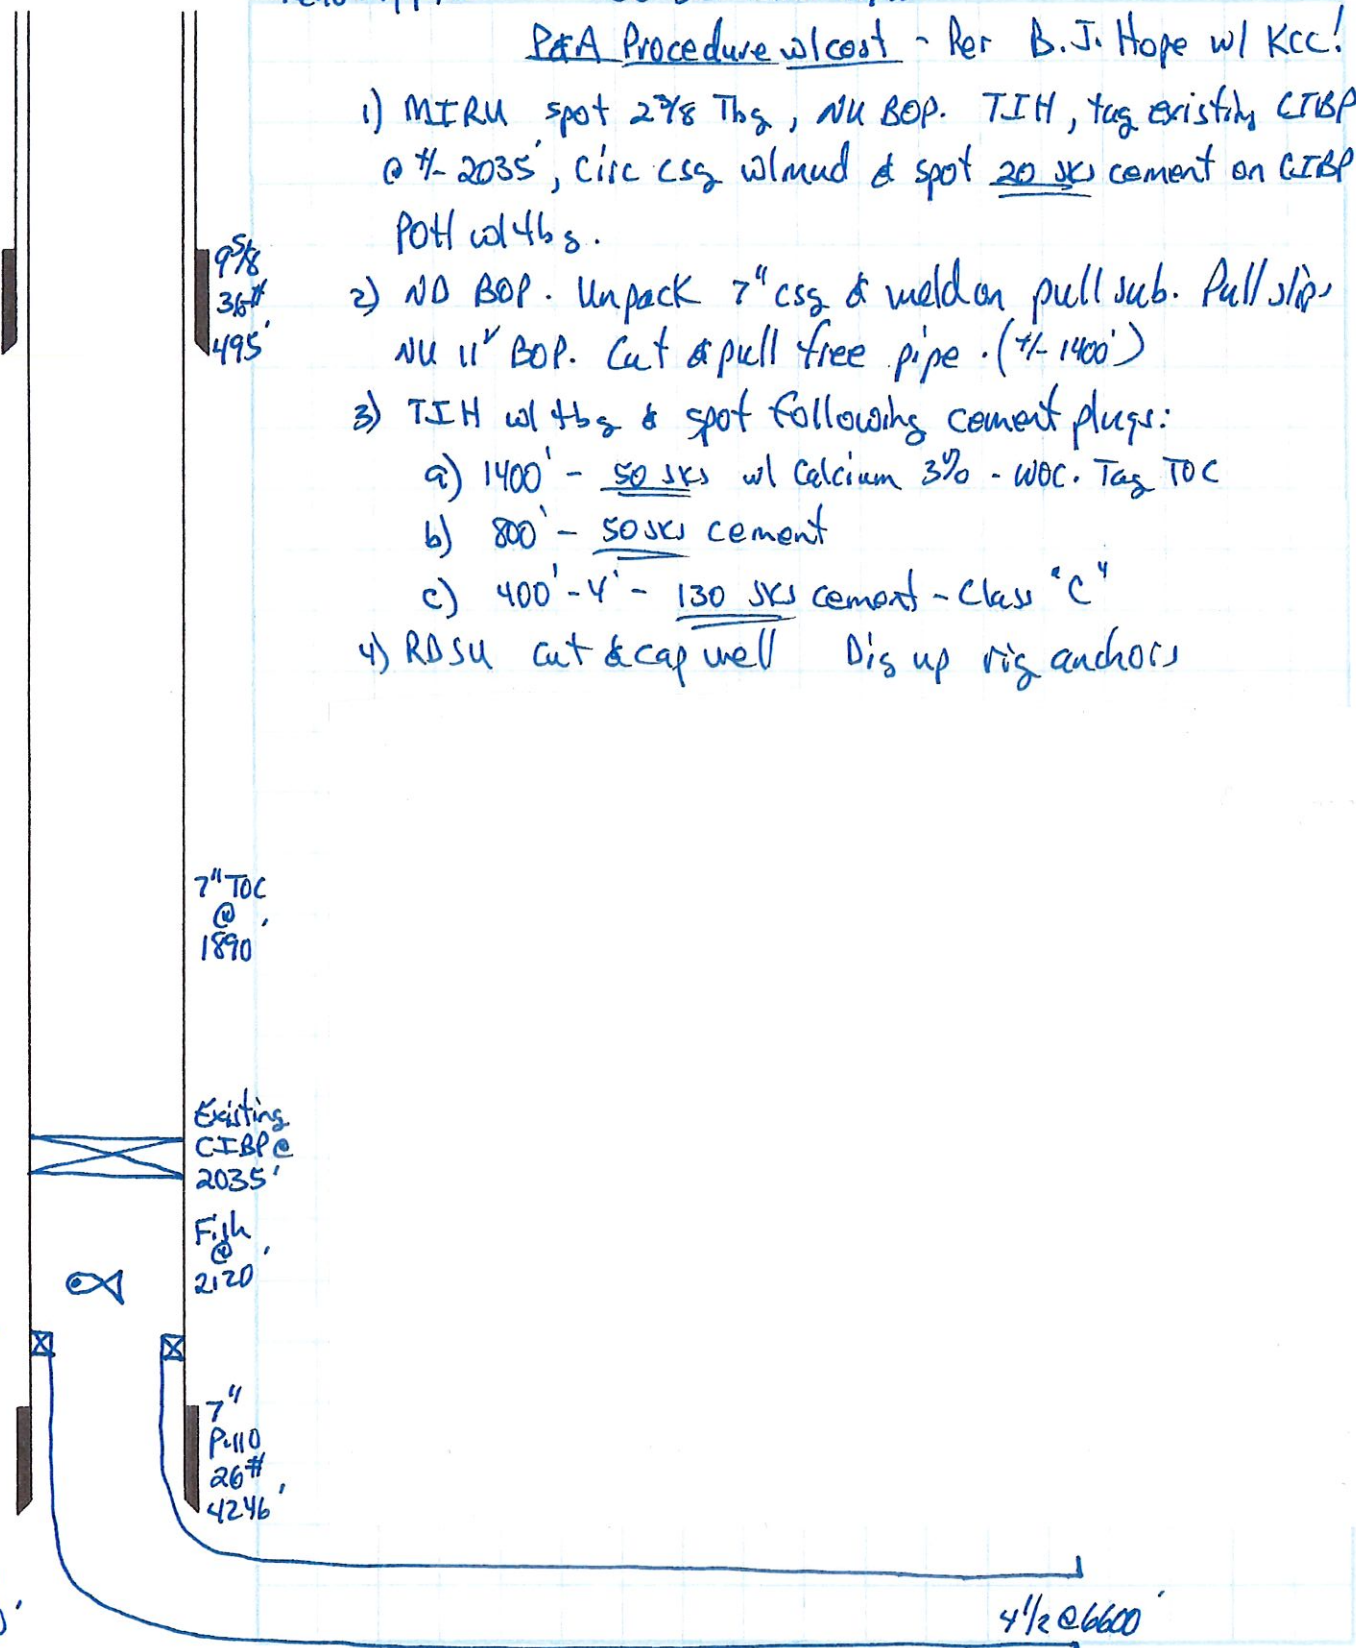 P&A Procedure w/cost - Per B.J. Hope w/ KCC!
1) MIRU spot 2 7/8 Tbg, NU BOP. TIH, tag existing CIBP
@ +/- 2035', Circ csg w/mud & spot 20 sks cement on CIBP
POH w/tbg.
2) ND BOP. Unpack 7" csg & weld on pull sub. Pull slips
NU 11" BOP. Cut & pull free pipe. (+/- 1400')
3) TIH w/ tbg & spot following cement plugs:
a) 1400' - 50 sks w/ Calcium 3% - WOC. Tag TOC
b) 800' - 50 sks cement
c) 400'-4' - 130 sks cement - Class "C"
4) RDSU cut & cap well Dig up rig anchors
9 5/8
36#
495'
7" TOC
@
1890'
Existing
CIBP @
2035'
Fish
@
2120'
7"
P-110
26#
4246'
4 1/2 @ 6600'